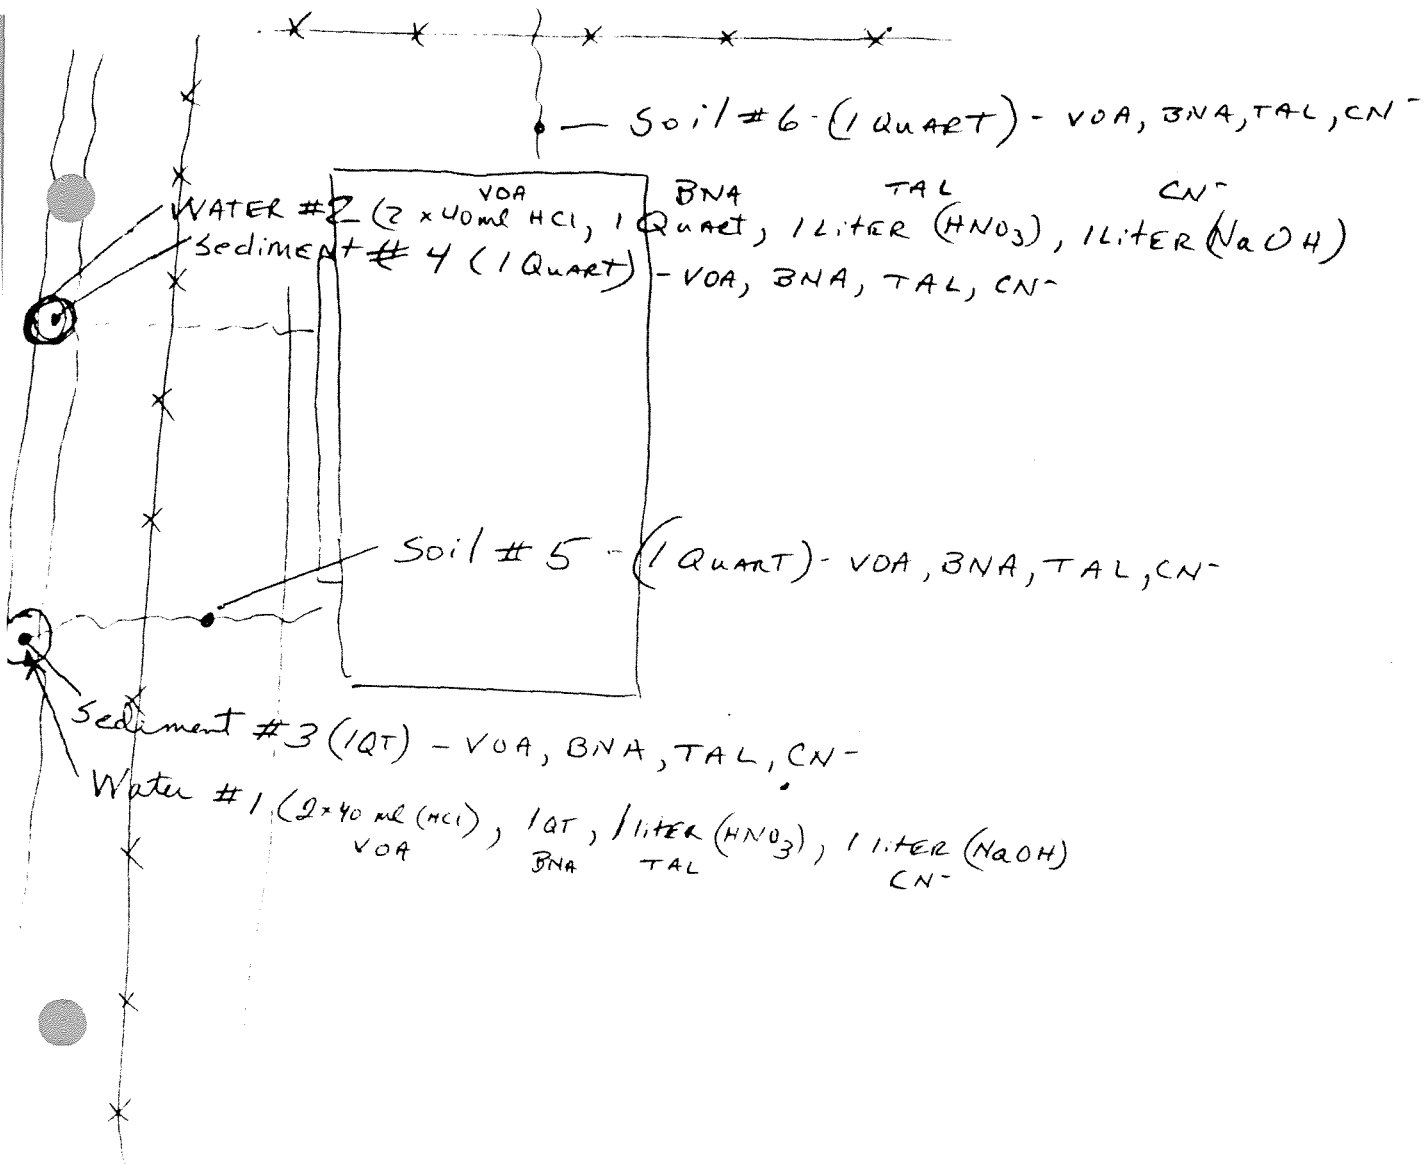 Soil #6 - (1 QUART) - VOA, BNA, TAL, CN-
VOA BNA TAL CN-
WATER #2 (2 x 40ml HCl, 1 Quart, 1 LitER (HNO3), 1 LitER (NaOH)
Sediment # 4 (1 QUART) - VOA, BNA, TAL, CN-
Soil # 5 - (1 QUART) - VOA, BNA, TAL, CN-
Sediment #3 (1QT) - VOA, BNA, TAL, CN-
Water #1 (2x40 ml (HCl), 1QT, 1 litER (HNO3), 1 litER (NaOH)
VOA BNA TAL CN-